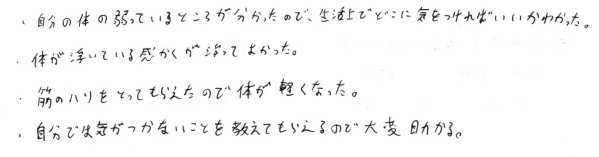 ・自分の体の弱っているところが分かったので、生活上でどこに気をつければいいかわかった。
・体が浮いている感かくが治ってよかった。
・筋のハリをとってもらえたので体が軽くなった。
・自分では気がつかないことを教えてもらえるので大変助かる。